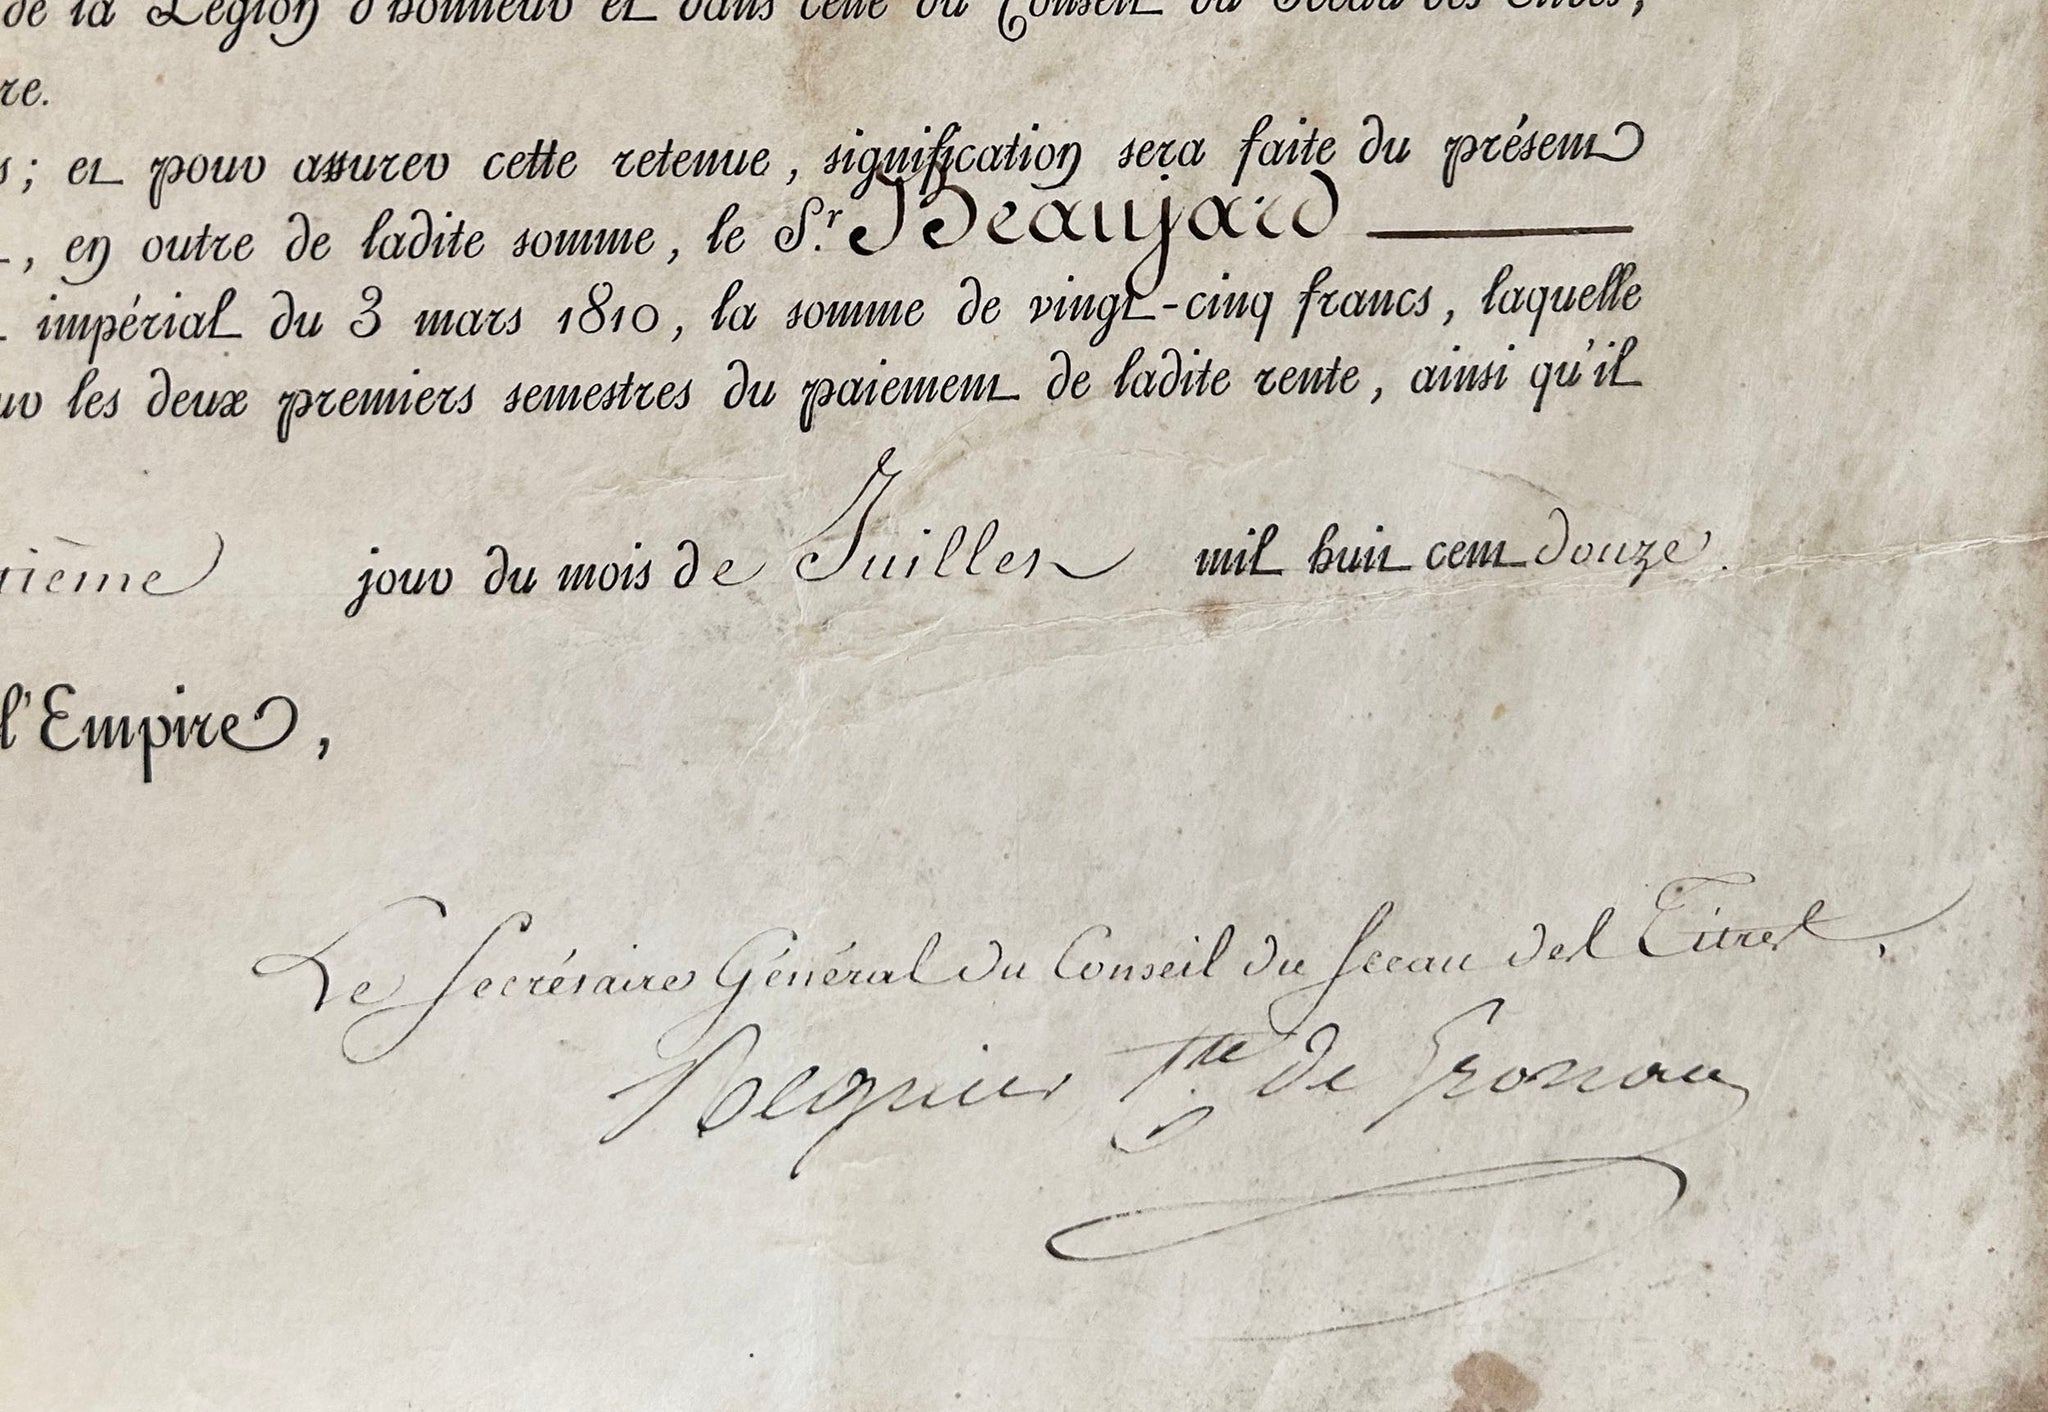 de la Légion d'honneur et dans celle du Conseil du Sceau des Titres,
re.
s ; et pour assurer cette retenue, signification sera faite du présent
, en outre de ladite somme, le S.r Beaujard
impérial du 3 mars 1810, la somme de vingt-cinq francs, laquelle
les deux premiers semestres du paiement de ladite rente, ainsi qu'il
ième jour du mois de Juillet mil huit cent douze.
l'Empire,
Le Secrétaire Général du Conseil du Sceau des Titres,
Regnier Cte de Gronau